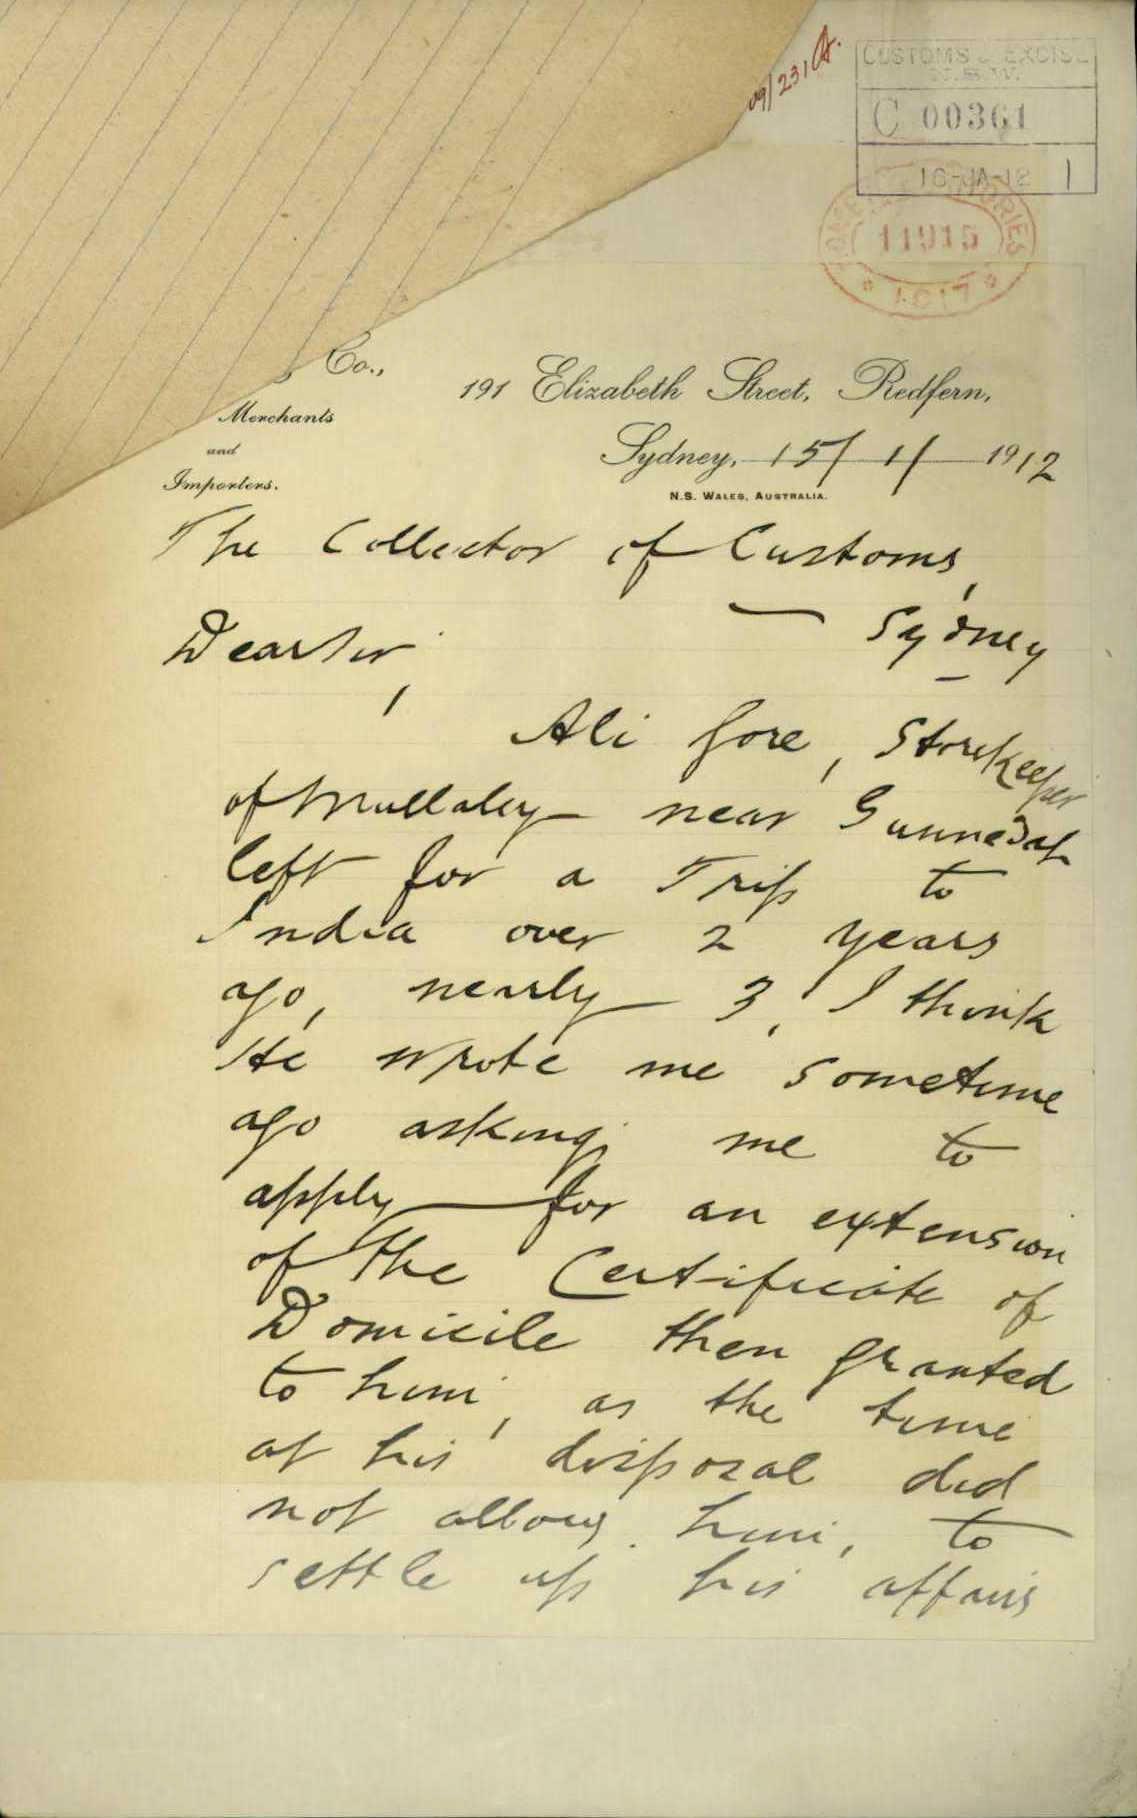 09/231A.
CUSTOMS & EXCISE
N.S.W.
C 00361
16-JA-12 1
11915
Co.,
191 Elizabeth Street, Redfern,
Merchants
and
Importers.
Sydney, 15/1/1912
N.S. WALES, AUSTRALIA.
The Collector of Customs,
Sydney
Dear Sir,
Ali Gore, Storekeeper
of Mullaley near Gunnedah
left for a Trip to
India over 2 years
ago, nearly 3, I think
He wrote me sometime
ago asking me to
apply for an extension
of the Certificate of
Domicile then granted
to him, as the time
at his disposal did
not allow him, to
settle up his affairs